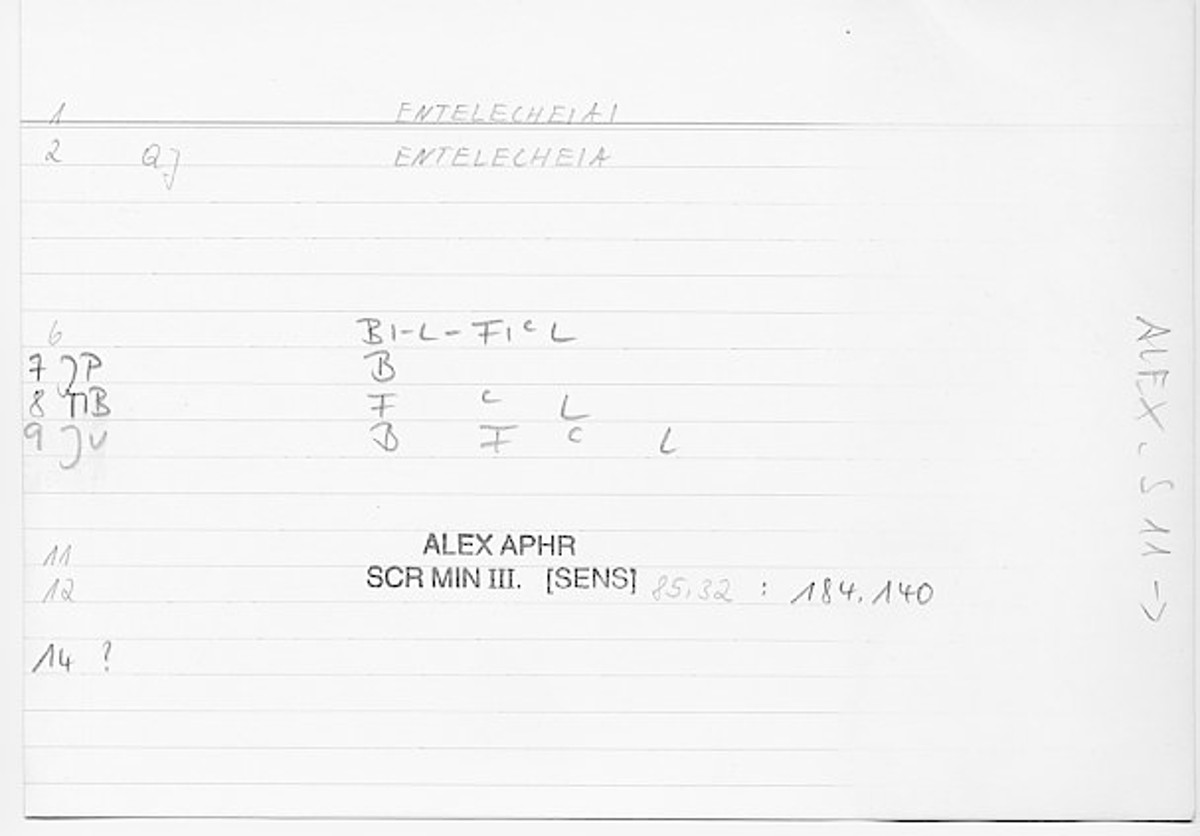 1 ENTELECHEIAI
2 QJ ENTELECHEIA
6 BI-L-FICL
7 JP B
8 ΠB F C L
9 JV B F C L
11 ALEX APHR
12 SCR MIN III. [SENS] 85,32 : 184.140
14 ?
ALEX. S 11 ->